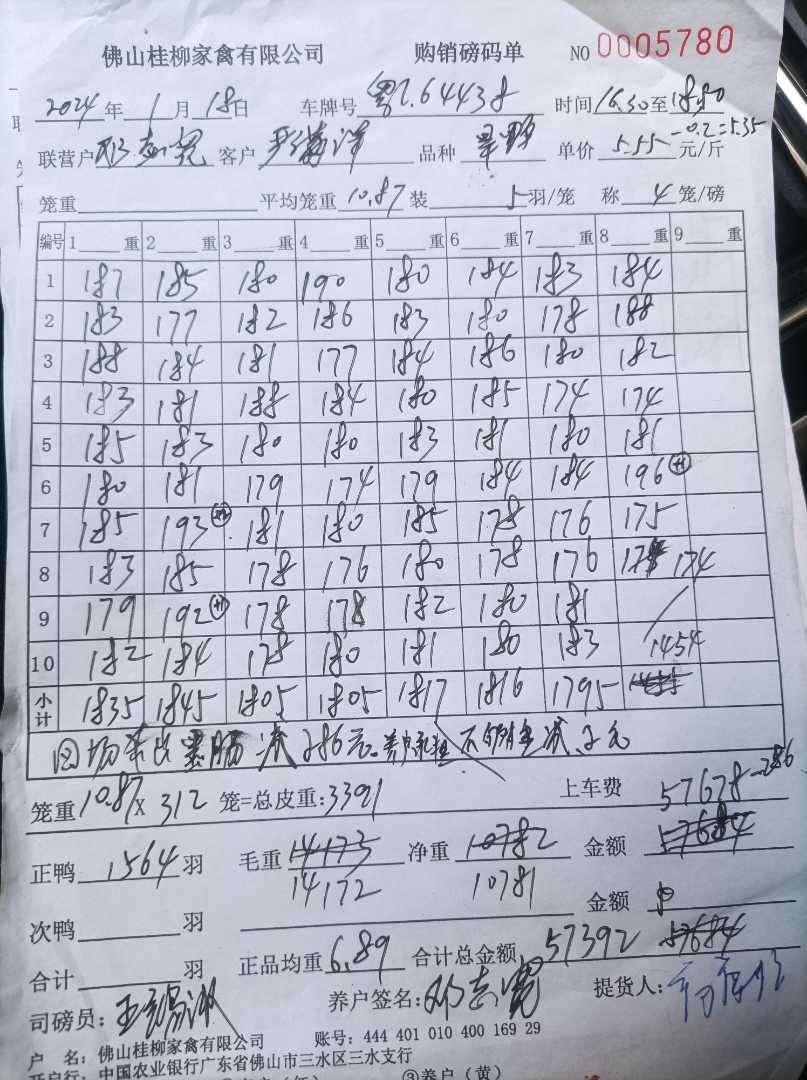 佛山桂柳家禽有限公司 购销磅码单 NO 0005780
2024 年 1 月 18 日 车牌号 粤 64438 时间 16.30 至 18.50
联营户 邓志 客户 品种 单价 5.55 元/斤 -0.2=5.35
笼重 平均笼重 10.87 装 5 羽/笼 称 4 笼/磅
编号 1 重 2 重 3 重 4 重 5 重 6 重 7 重 8 重 9 重
1 187 185 180 190 180 184 183 184
2 183 177 182 186 183 180 178 188
3 188 184 181 177 184 186 180 182
4 183 181 188 184 180 185 174 174
5 185 183 180 180 183 181 180 181
6 180 181 179 174 179 184 184 196 +1
7 185 193 181 180 185 178 176 175
8 183 185 178 176 180 178 176 174
9 179 192 +1 178 178 182 180 181
10 182 184 178 180 181 180 183 1454
小计 1835 1845 1805 1805 1817 1816 1795
因场 减 286元。养户承担 减 2元
笼重 10.87 X 312 笼=总皮重: 3391 上车费 57678 -286
正鸭 1564 羽 毛重 14173 净重 10782 金额 57684
14172 10781
次鸭 羽 金额
合计 羽 正品均重 6.89 合计总金额 57392 57684
司磅员: 王 养户签名: 邓志 提货人:
户 名: 佛山桂柳家禽有限公司 账号: 444 401 010 400 169 29
开户行: 中国农业银行广东省佛山市三水区三水支行
③养户(黄)